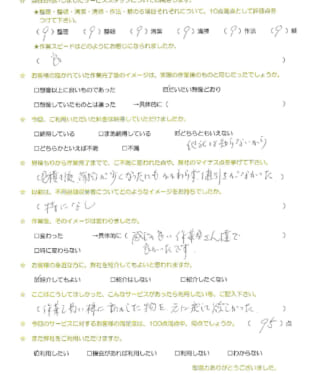 ★整理・整頓・清掃・清潔・作法・躾の6項目それぞれについて、10点満点として評価点をつけて下さい。
(9)整理 (9)整頓 (9)清掃 (9)清潔 (9)作法 (9)躾
★作業スピードはどのようにお感じになられましたか。
☆ お客様の描かれていた作業完了後のイメージは、実際の作業後のものと同じだったでしょうか。
□想像以上に良いものであった ☑だいたい想像どおり
□想像していたものとは違った →具体的に( )
☆ 今回、ご利用いただいた料金は納得していただけましたか。
□納得している □まあ納得している ☑どちらともいえない
□どちらかといえば不満 □不満
☆ 見積もりから作業完了までで、ご不満に思われた点や、弊社のマイナス点を挙げて下さい。
☆ 以前は、不用品回収業者についてどのようなイメージをお持ちでしたか。
(特になし)
☆ 作業後、そのイメージは変わりましたか。
□変わった →具体的に(感じの良い作業員さん達で
良かったです)
□特に変わらない
☆ お客様の身近な方に、弊社を紹介してもよいと思われますか。
☑紹介してもよい □紹介はしない □紹介したくない
☆ ここはこうしてほしかった、こんなサービスがあったら利用したい等、ご記入下さい。
(作業し易い様に動かした物を元に戻して欲しかった)
☆ 今回のサービスに対するお客様の満足度は、100点満点中、何点でしょうか。(95)点
☆ また弊社をご利用いただけますか。
☑利用したい □機会があれば利用したい □利用しない □わからない
ご協力ありがとうございました。